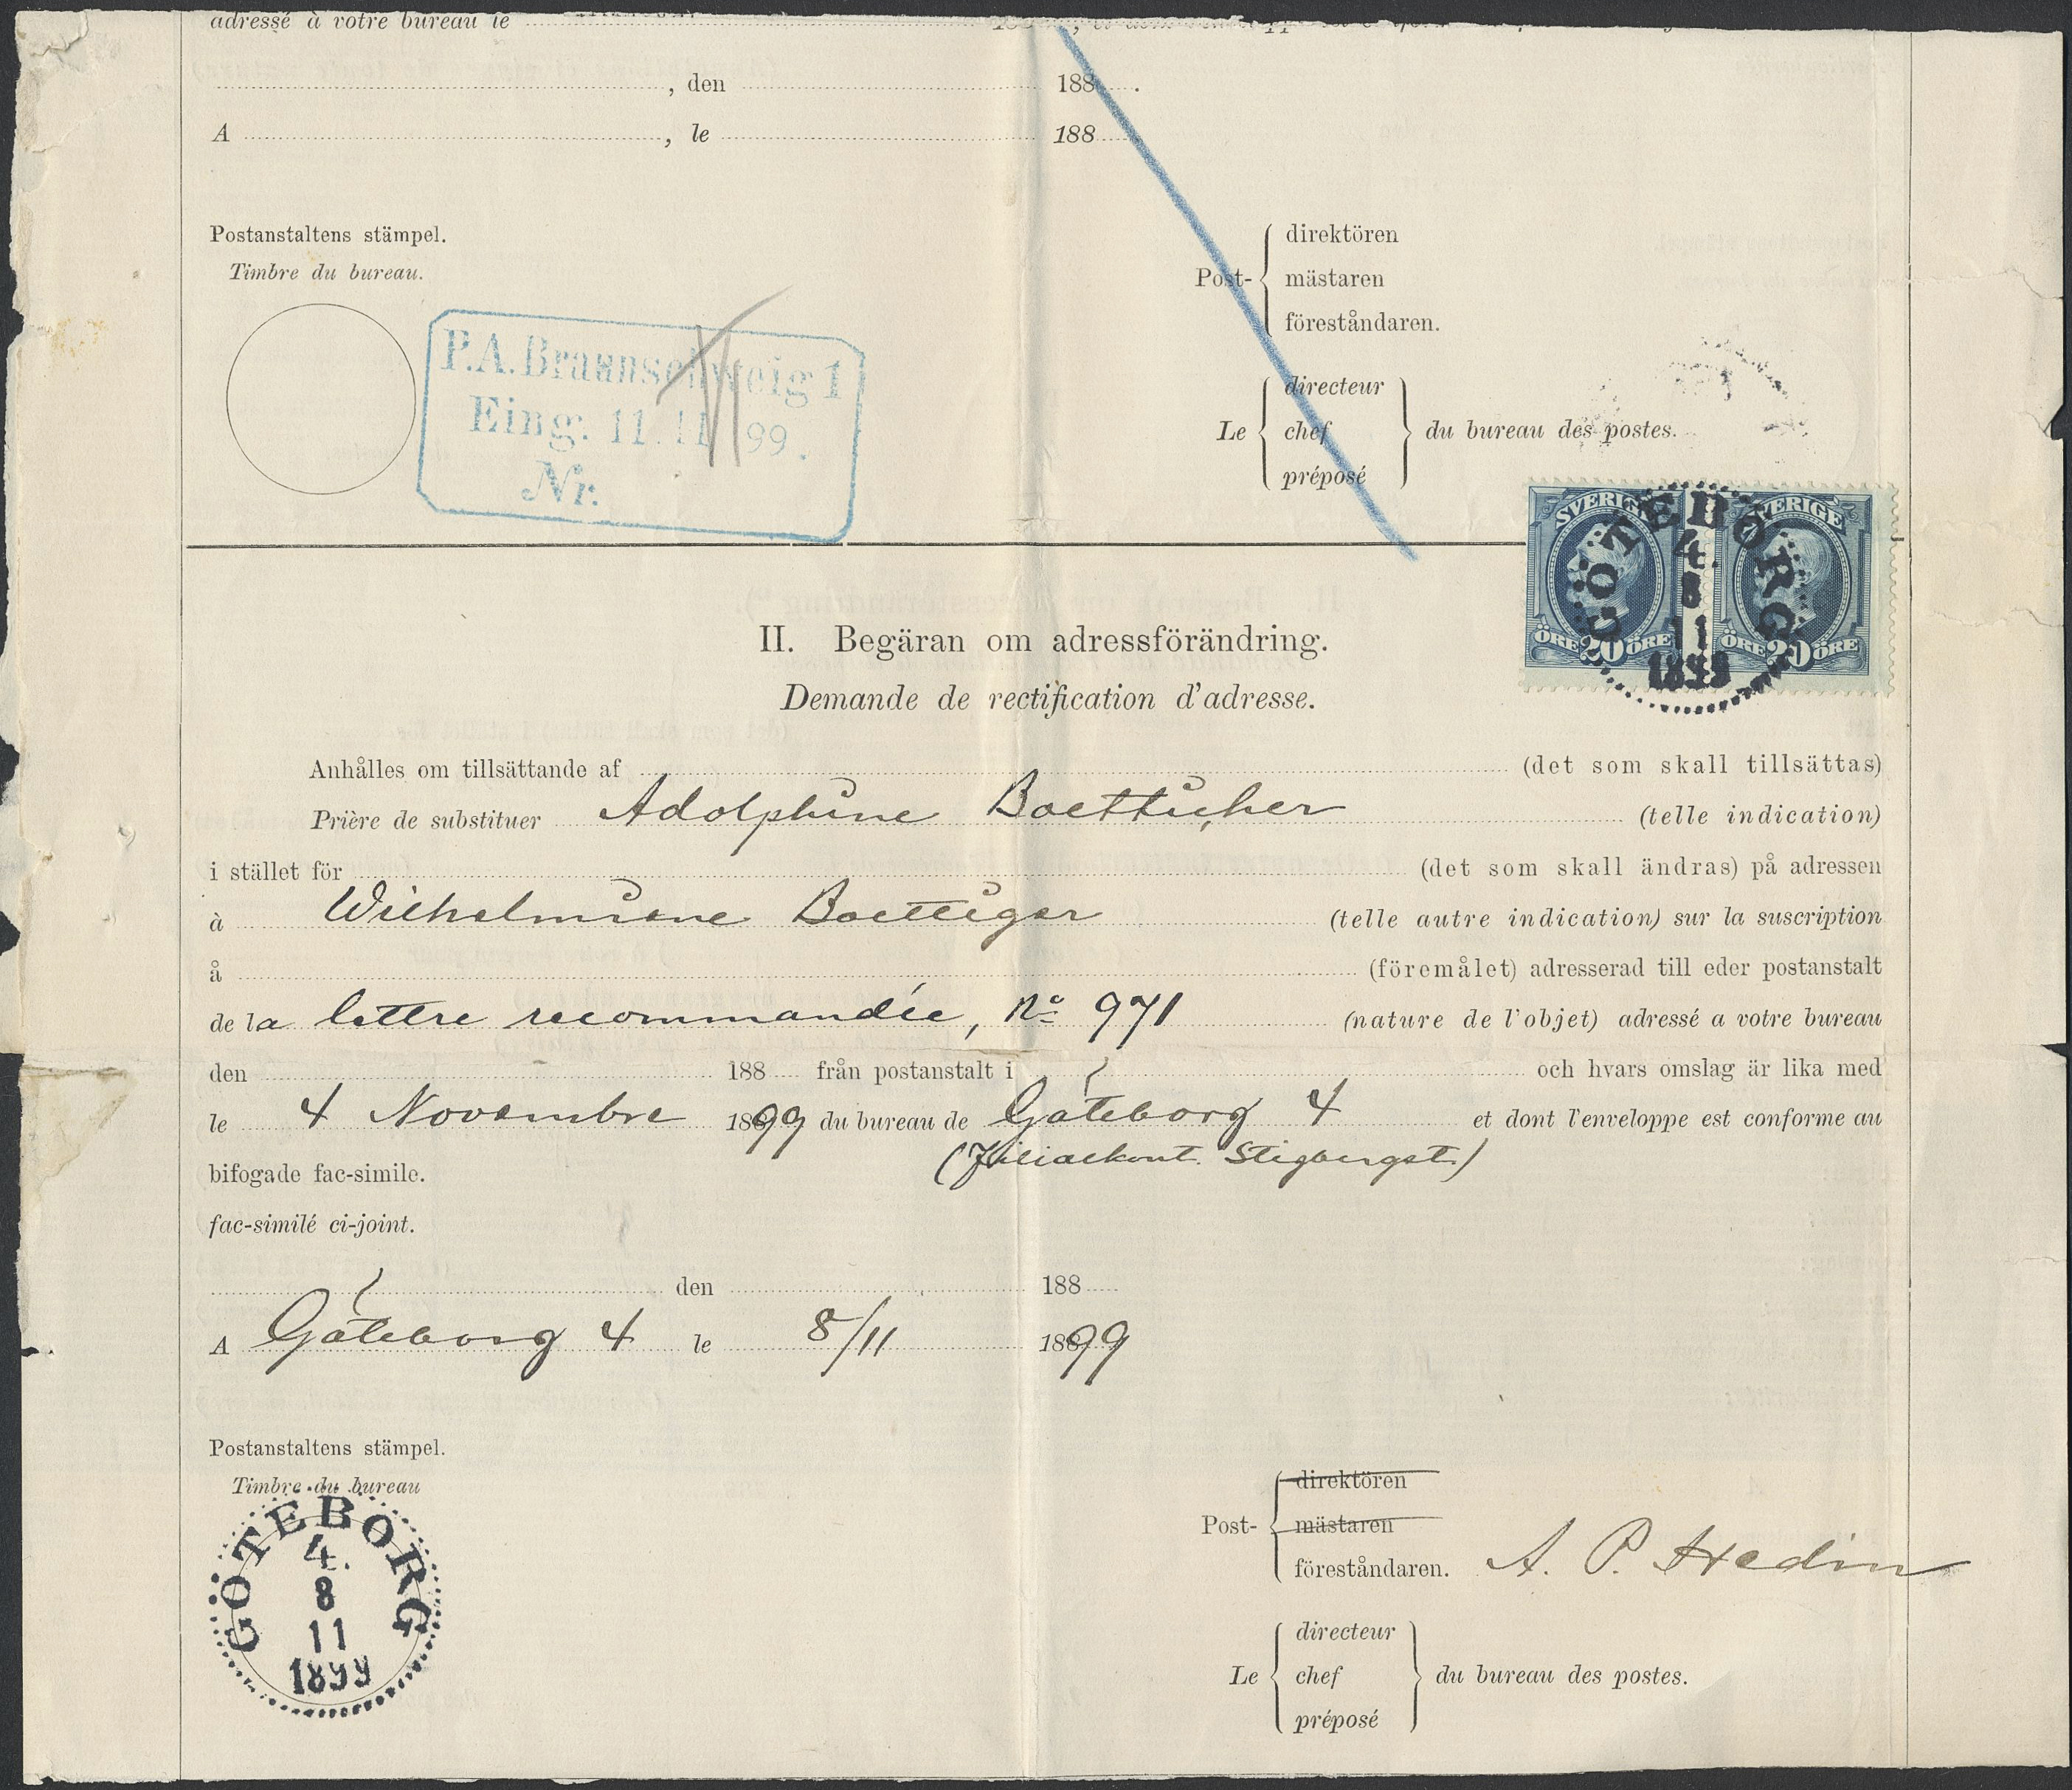 adressé à votre bureau le
, den 188 .
A , le 188
Postanstaltens stämpel.
Timbre du bureau.
Post- direktören
mästaren
föreståndaren.
P.A. Braunschweig 1
Eing. 11.11 99.
Nr.
Le directeur
chef
préposé
du bureau des postes.
SVERIGE SVERIGE
ÖRE 20 ÖRE ÖRE 20 ÖRE
GÖTEBORG
4.
8
11
1899
II. Begäran om adressförändring.
Demande de rectification d'adresse.
Anhålles om tillsättande af (det som skall tillsättas)
Prière de substituer Adolphine Boetticher (telle indication)
i stället för (det som skall ändras) på adressen
à Wilhelmine Boettiger (telle autre indication) sur la suscription
å (föremålet) adresserad till eder postanstalt
de la lettre recommandée, No 971 (nature de l'objet) adressé a votre bureau
den 188 från postanstalt i och hvars omslag är lika med
le 4 Novembre 1899 du bureau de Göteborg 4 et dont l'enveloppe est conforme au
(Filialkont. Stigbergst.)
bifogade fac-simile.
fac-similé ci-joint.
den 188
A Göteborg 4 le 8/11 1899
Postanstaltens stämpel.
Timbre du bureau
GÖTEBORG
4.
8
11
1899
Post- direktören
mästaren
föreståndaren. A. P. Hedin
Le directeur
chef
préposé
du bureau des postes.